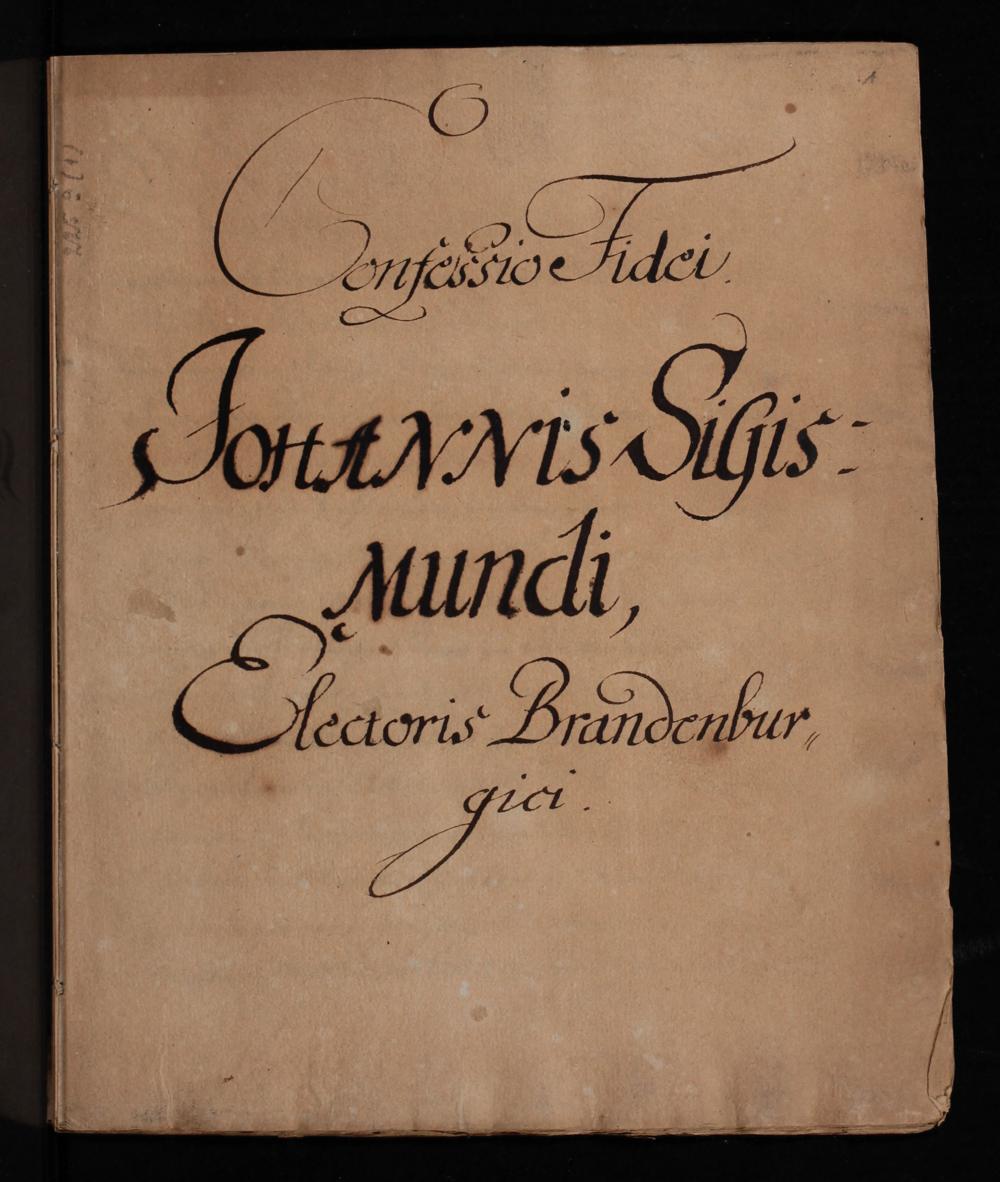 1
Confessio Fidei.
Johannis Sigis-
mundi,
Electoris Brandenbur„
gici.